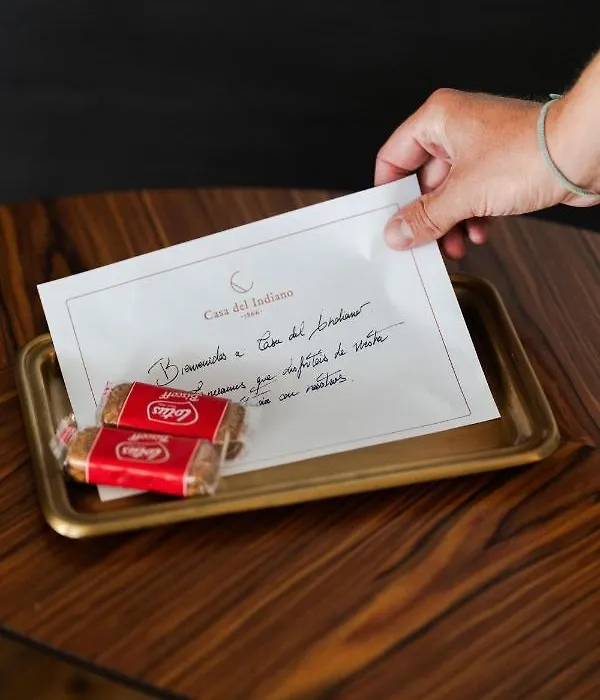 Casa del Indiano
·1866·
Bienvenidos a Casa del Indiano
que disfrutéis de vuestra
con nosotros.
Lotus
Biscoff
Lotus
Biscoff